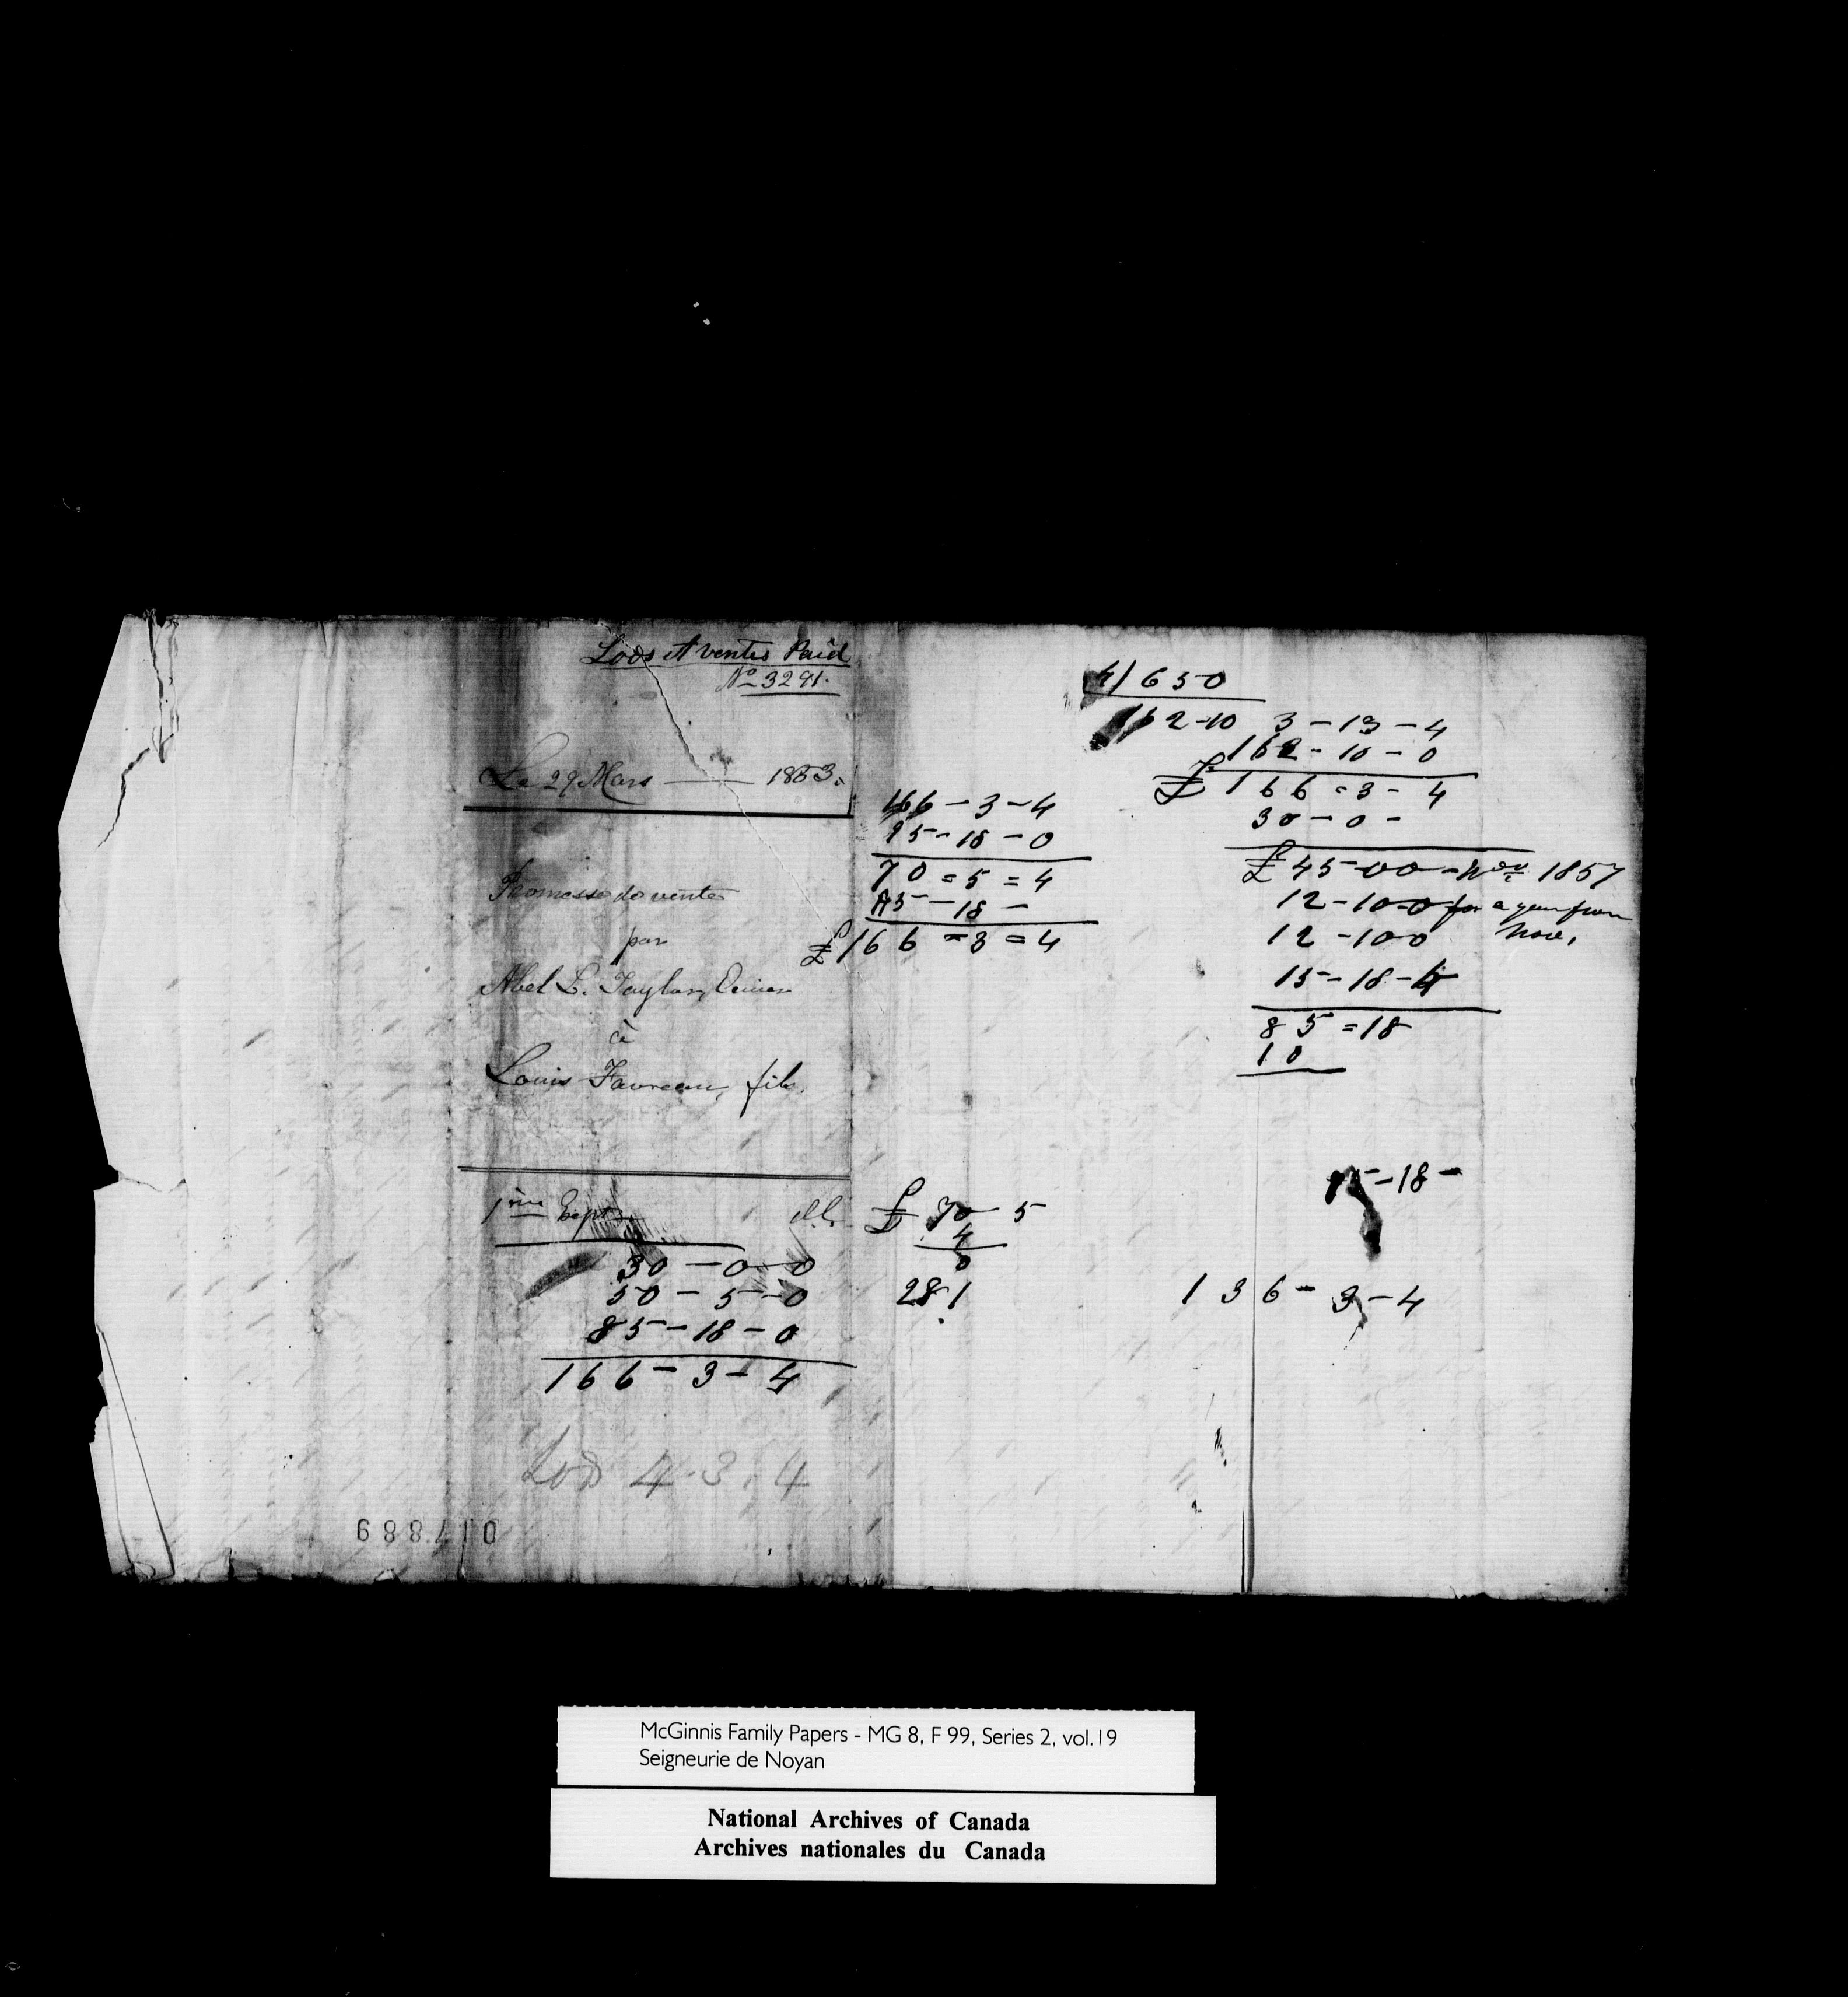 Lods et ventes Paid
No 3291.
Le 29 Mars 1853.
Promesse de vente
par
Abel L. Taylor,
à
Louis Favreau, fils.
1ère Expn.
30-0-0
50-5-0
85-18-0
166-3-4
Lods 4.3.4
011889
166-3-4
95-18-0
70=5=4
95-18-
£166=3=4
£ 70 5
4
0
281
4/650
162-10
3-13-4
162-10-0
£166-3-4
30-0-
£45-00-Nov 1857
12-10-0 for a year from
12-100 Nov.
15-18-4
85=18
10
15-18-
136-3-4
McGinnis Family Papers - MG 8, F 99, Series 2, vol.19
Seigneurie de Noyan
National Archives of Canada
Archives nationales du Canada